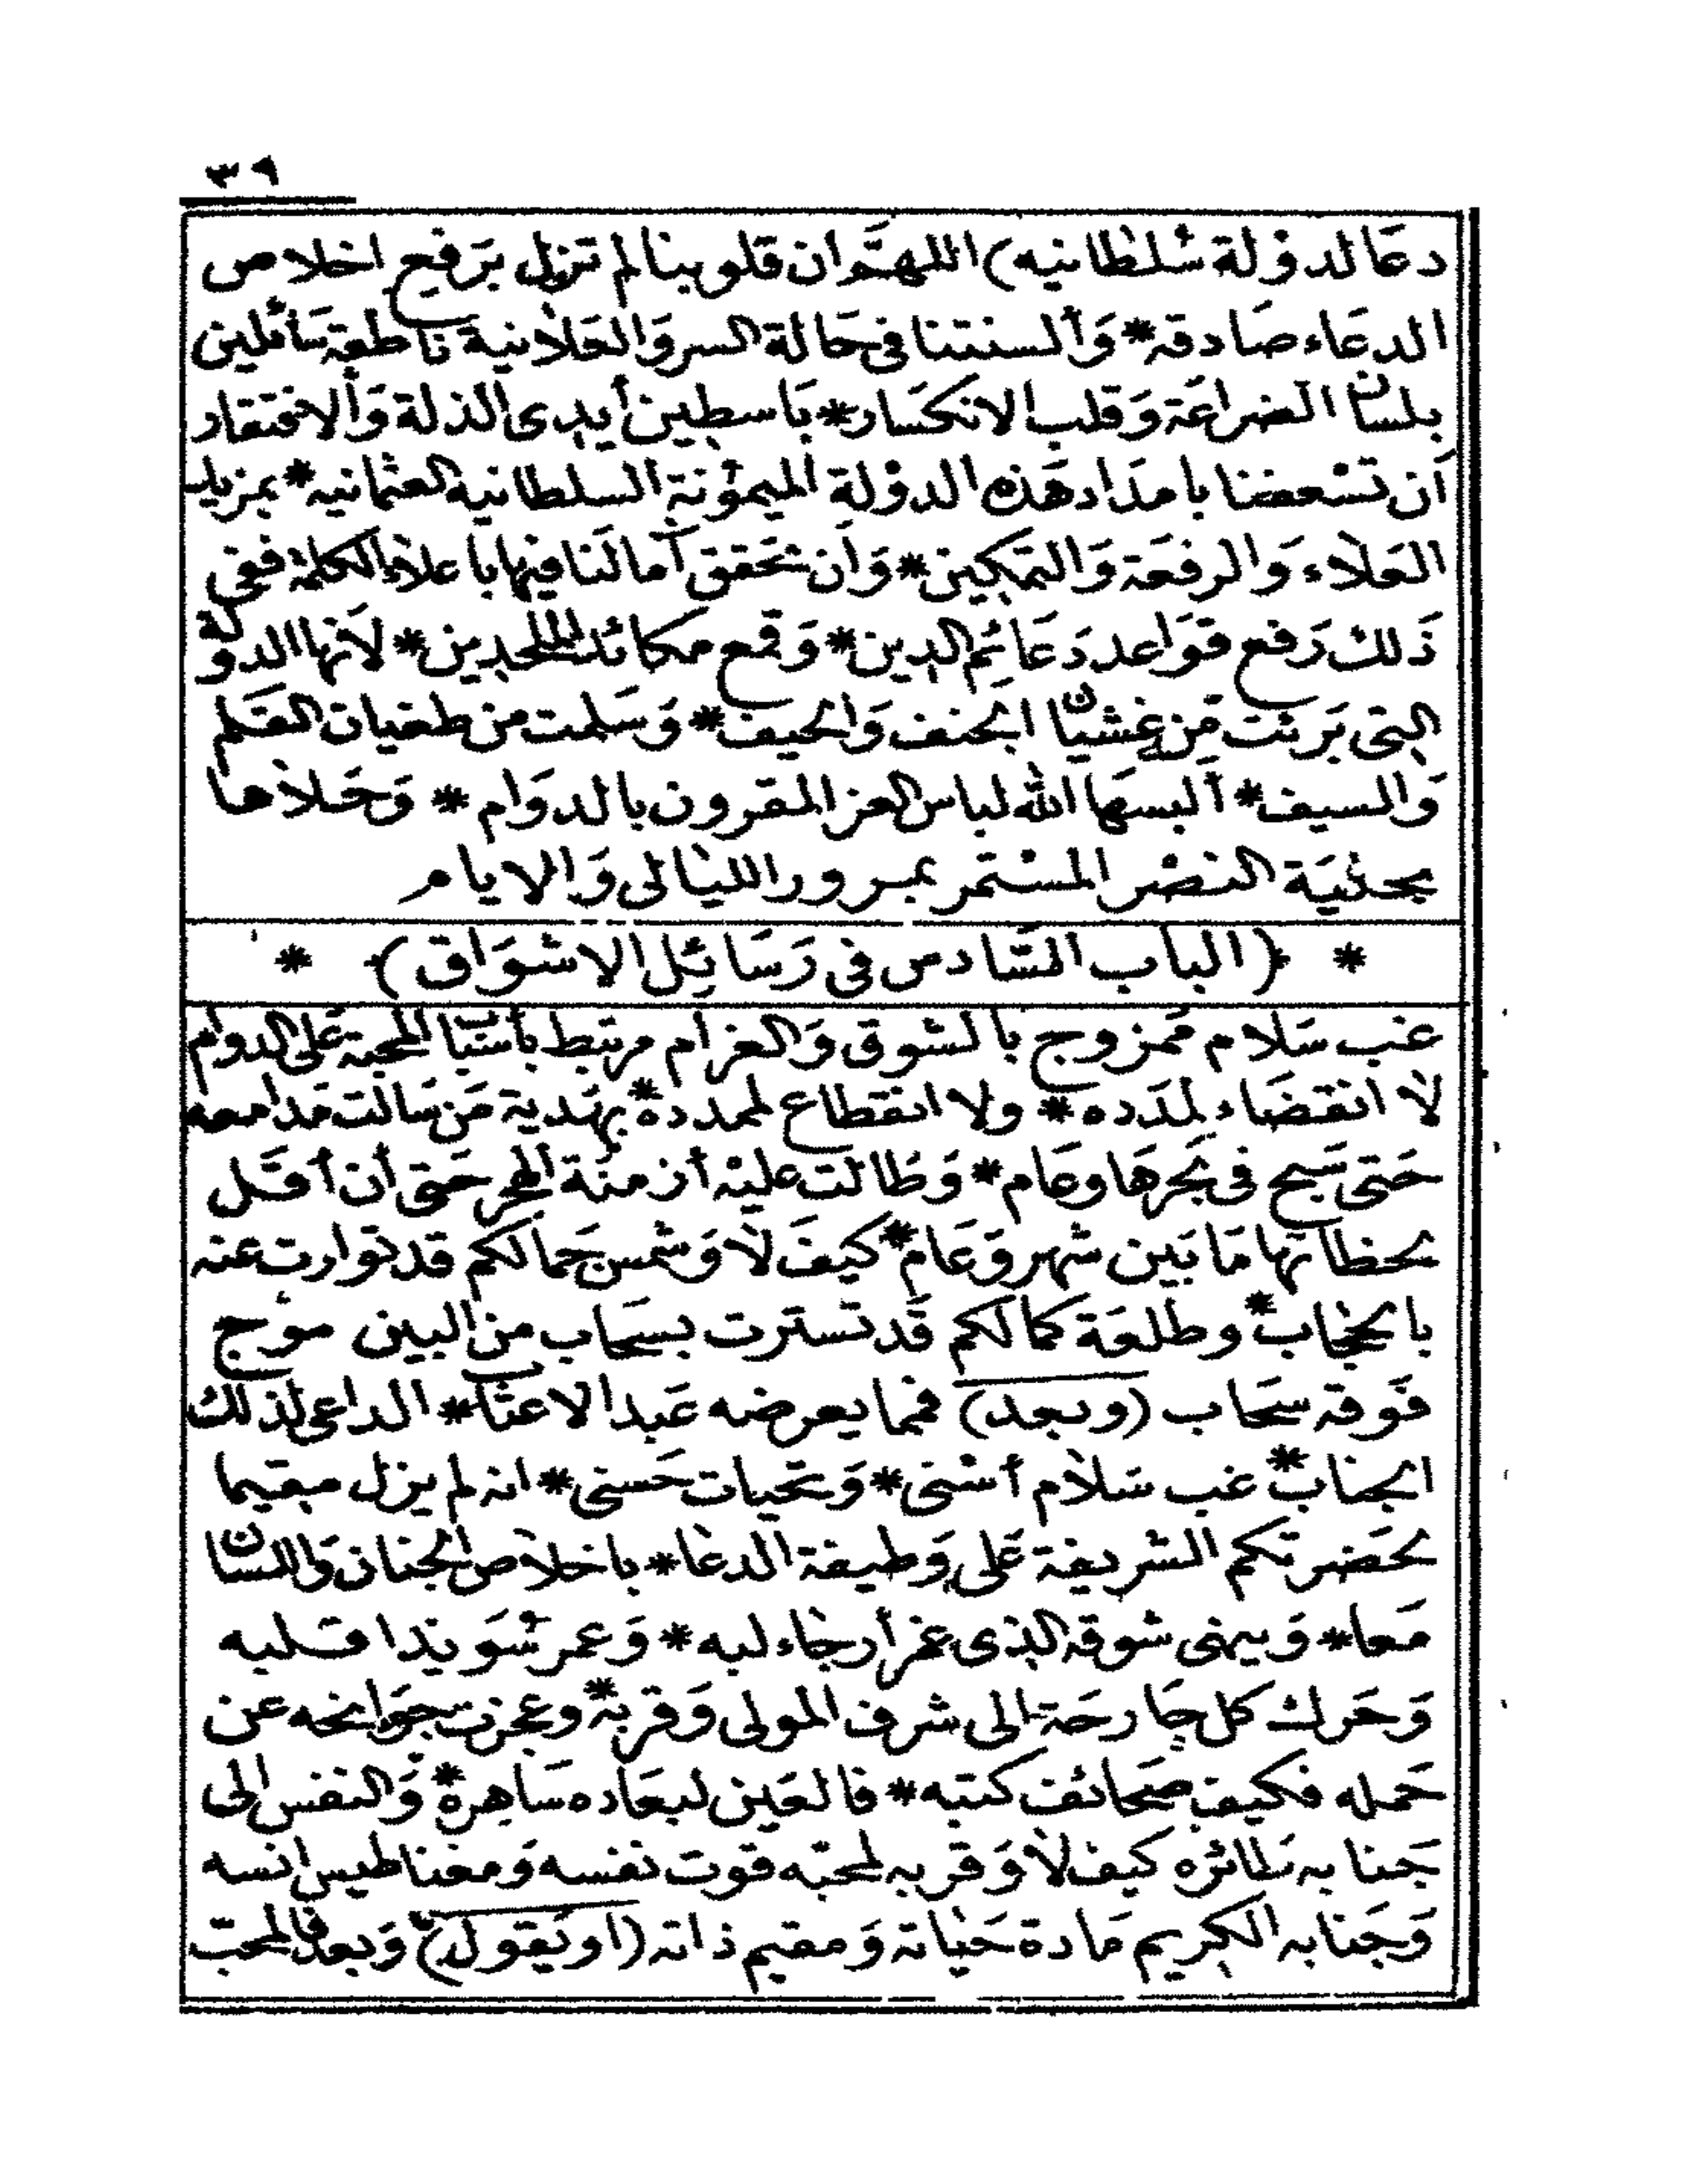 ٣٩
دعا لدولة سلطانيه) اللهم ان قلوبنا لم تزل برفيع اخلاص
الدعاء صادقه * وألسنتنا في حالة السر والعلانية ناطقة سائلين
بلسان الضراعة وقلب الانكسار * باسطين أيدى الذلة والافتقار
أن تسعفنا بامداد هذه الدولة الميمونة السلطانية العثمانيه * بمزيد
العلاء والرفعة والتمكين * وأن تحقق آمالنا فيها باعلاء الكلمة ففى
ذلك رفع قواعد دعائم الدين * وقمع مكائد الملحدين * لانها الدولة
التى برئت من غشيان الجنف والحيف * وسلمت من طغيان القلم
والسيف * ألبسها الله لباس العز المقرون بالدوام * وحلاها
بحلية النصر المستمر بمرور الليالى والايام
* (الباب السادس فى رسائل الاشواق) *
غب سلام ممزوج بالشوق والغرام مرتبط بأسباب المحبة على الدوام
لا انقضاء لمدده * ولا انقطاع لمدده * بهدية من سالت مدامعه
حتى سبح فى بحرها وعام * وطالت عليه أزمنة الهجر حتى أن أقل
لحظاتها ما بين شهر وعام * كيف لا وشمس جمالكم قد توارت عنه
بالحجاب * وطلعة كمالكم قد تسترت بسحاب من البين موج
فوقه سحاب (وبعد) فمما يعرضه عبد الاعتاب * الداعى لذلك
الجناب * غب سلام أسنى * وتحيات حسنى * انه لم يزل مقيما
لحضرتكم الشريفة على وظيفة الدعا * باخلاص الجنان واللسان
معا * وينهى شوقه الذى غمر أرجاء لبه * وعمر سويدا قلبه
وحرك كل جارحة الى شرف المولى وقربه * وعجزت جوانحه عن
حمله فكيف صحائف كتبه * فالعين لبعاده ساهرة * والنفس الى
جنابه طائره كيف لا وقربه لمحبه قوت نفسه ومغناطيس انسه
وجنابه الكريم مادة حياته ومقيم ذاته (او يقول) وبعد فالمحب